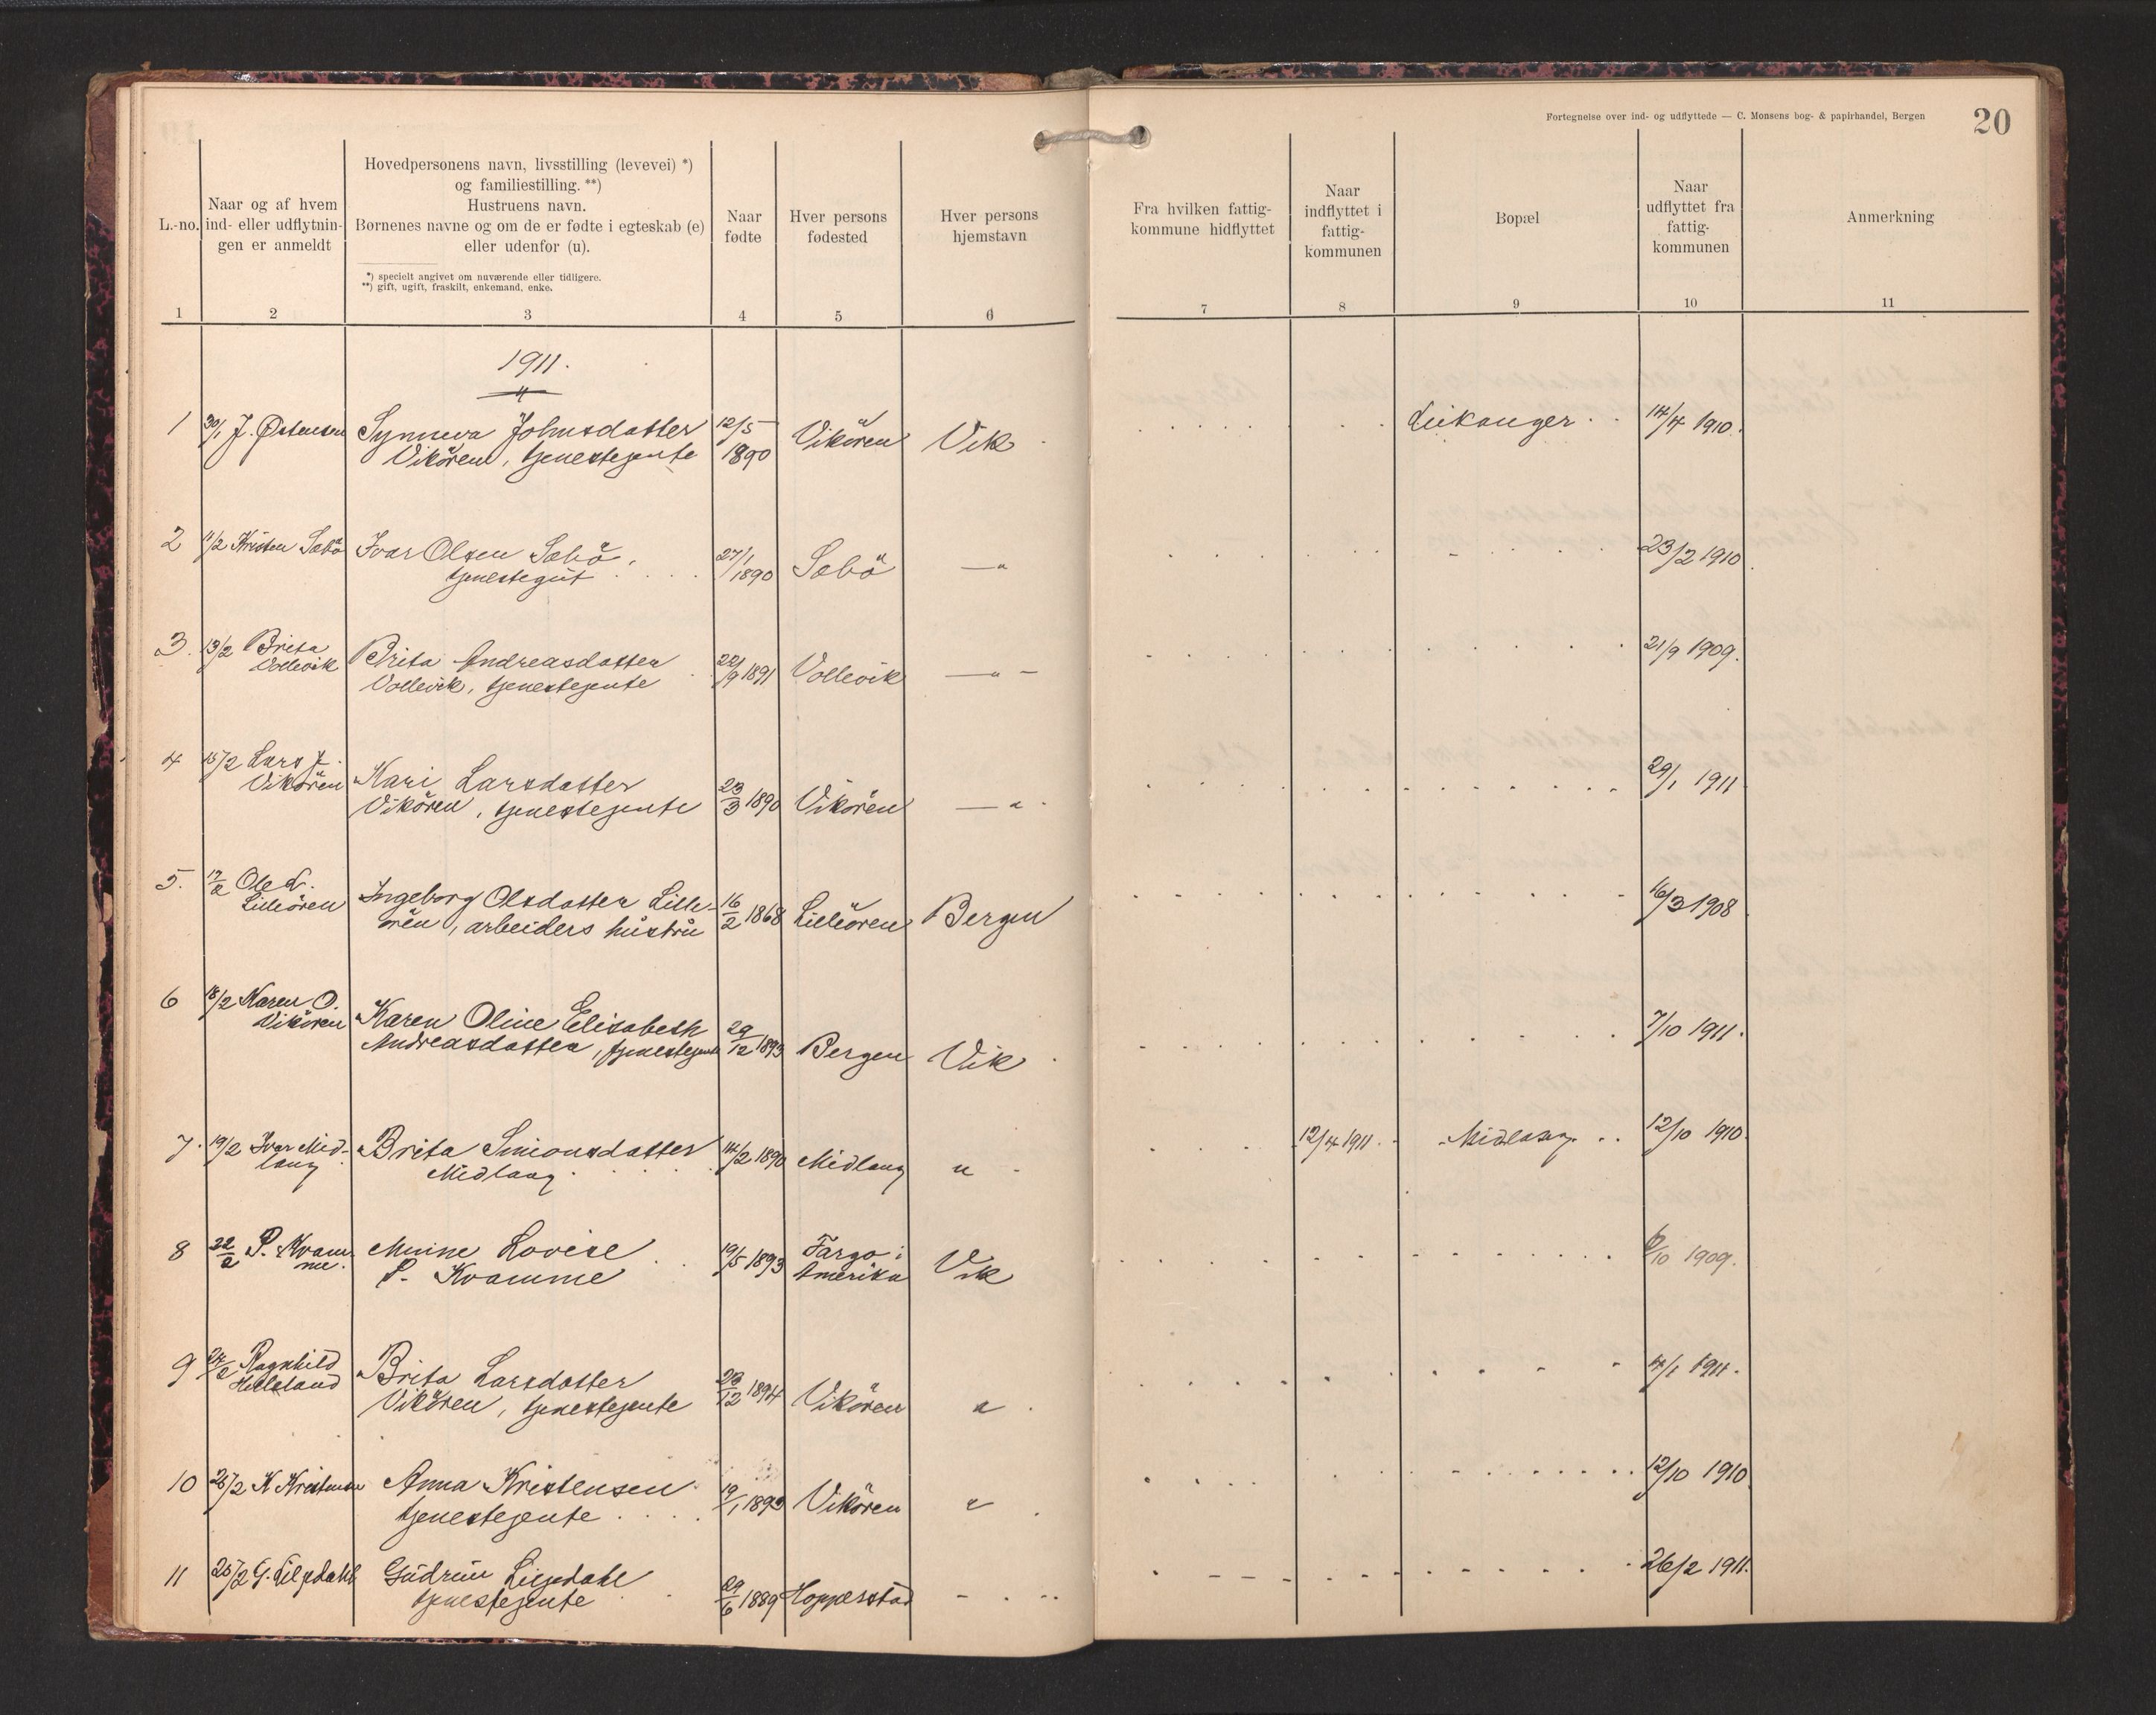 Fortegnelse over ind- og udflyttede — C. Monsens bog- & papirhandel, Bergen
20
L.-no.
Naar og af hvem
ind- eller udflytnin-
gen er anmeldt
Hovedpersonens navn, livsstilling (levevei) *)
og familiestilling. **)
Hustruens navn.
Børnenes navne og om de er fødte i egteskab (e)
eller udenfor (u).
*) specielt angivet om nuværende eller tidligere.
**) gift, ugift, fraskilt, enkemand, enke.
Naar
fødte
Hver persons
fødested
Hver persons
hjemstavn
Fra hvilken fattig-
kommune hidflyttet
Naar
indflyttet i
fattig-
kommunen
Bopæl
Naar
udflyttet fra
fattig-
kommunen
Anmerkning
1 2 3 4 5 6 7 8 9 10 11
1911.
1 30/1 J. Østensen Synneva Johnsdatter 12/5 Vikören Vik Leikanger 14/4 1910.
Vikören, tjenestegente 1890
2 11/2 Kristen Säbö Ivar Olsen Säbö, 27/1 Säbö —"— 23/2 1910
tjenestegut 1890
3. 13/2 Brita Brita Andreasdatter 22/9 1891 Vollevik —"— 21/9 1909.
Vollevik Vollevik, tjenestegente
4 15/2 Lars J. Kari Larsdatter 23/3 1890 Vikören —"— 29/1 1911
Vikören Vikören, tjenestegente
5. 17/2 Ole L. Ingeborg Olsdatter Lille- 16/2 1868 Lilleören Bergen 16/3 1908
Lilleören ören, arbeiders hustru
6 18/2 Karen O. Karen Oline Elisabeth 29/12 1893 Bergen Vik 7/10 1911.
Vikören Andreasdatter, tjenestegente
7. 19/2 Ivar Mid- Brita Simonsdatter 14/2 1890 Midlang " 12/4 1911. Midlang 12/10 1910.
lang Midlang
8 22/2 P. Kvam- Minne Lovise 19/5 1893 Fargo i Vik /10 1909.
me. P. Kvamme Amerika
9 24/2 Ragnhild Brita Larsdatter 23/12 1894 Vikören " 4/1 1911.
Helleland Vikören, tjenestegente
10 25/2 K Kristensen Anna Kristensen 19/1 1893 Vikören " 12/10 1910
tjenestegente
11 25/2 G. Liljedahl Gudrun Liljedahl 29/6 1889 Hopperstad 26/2 1911.
tjenestegente